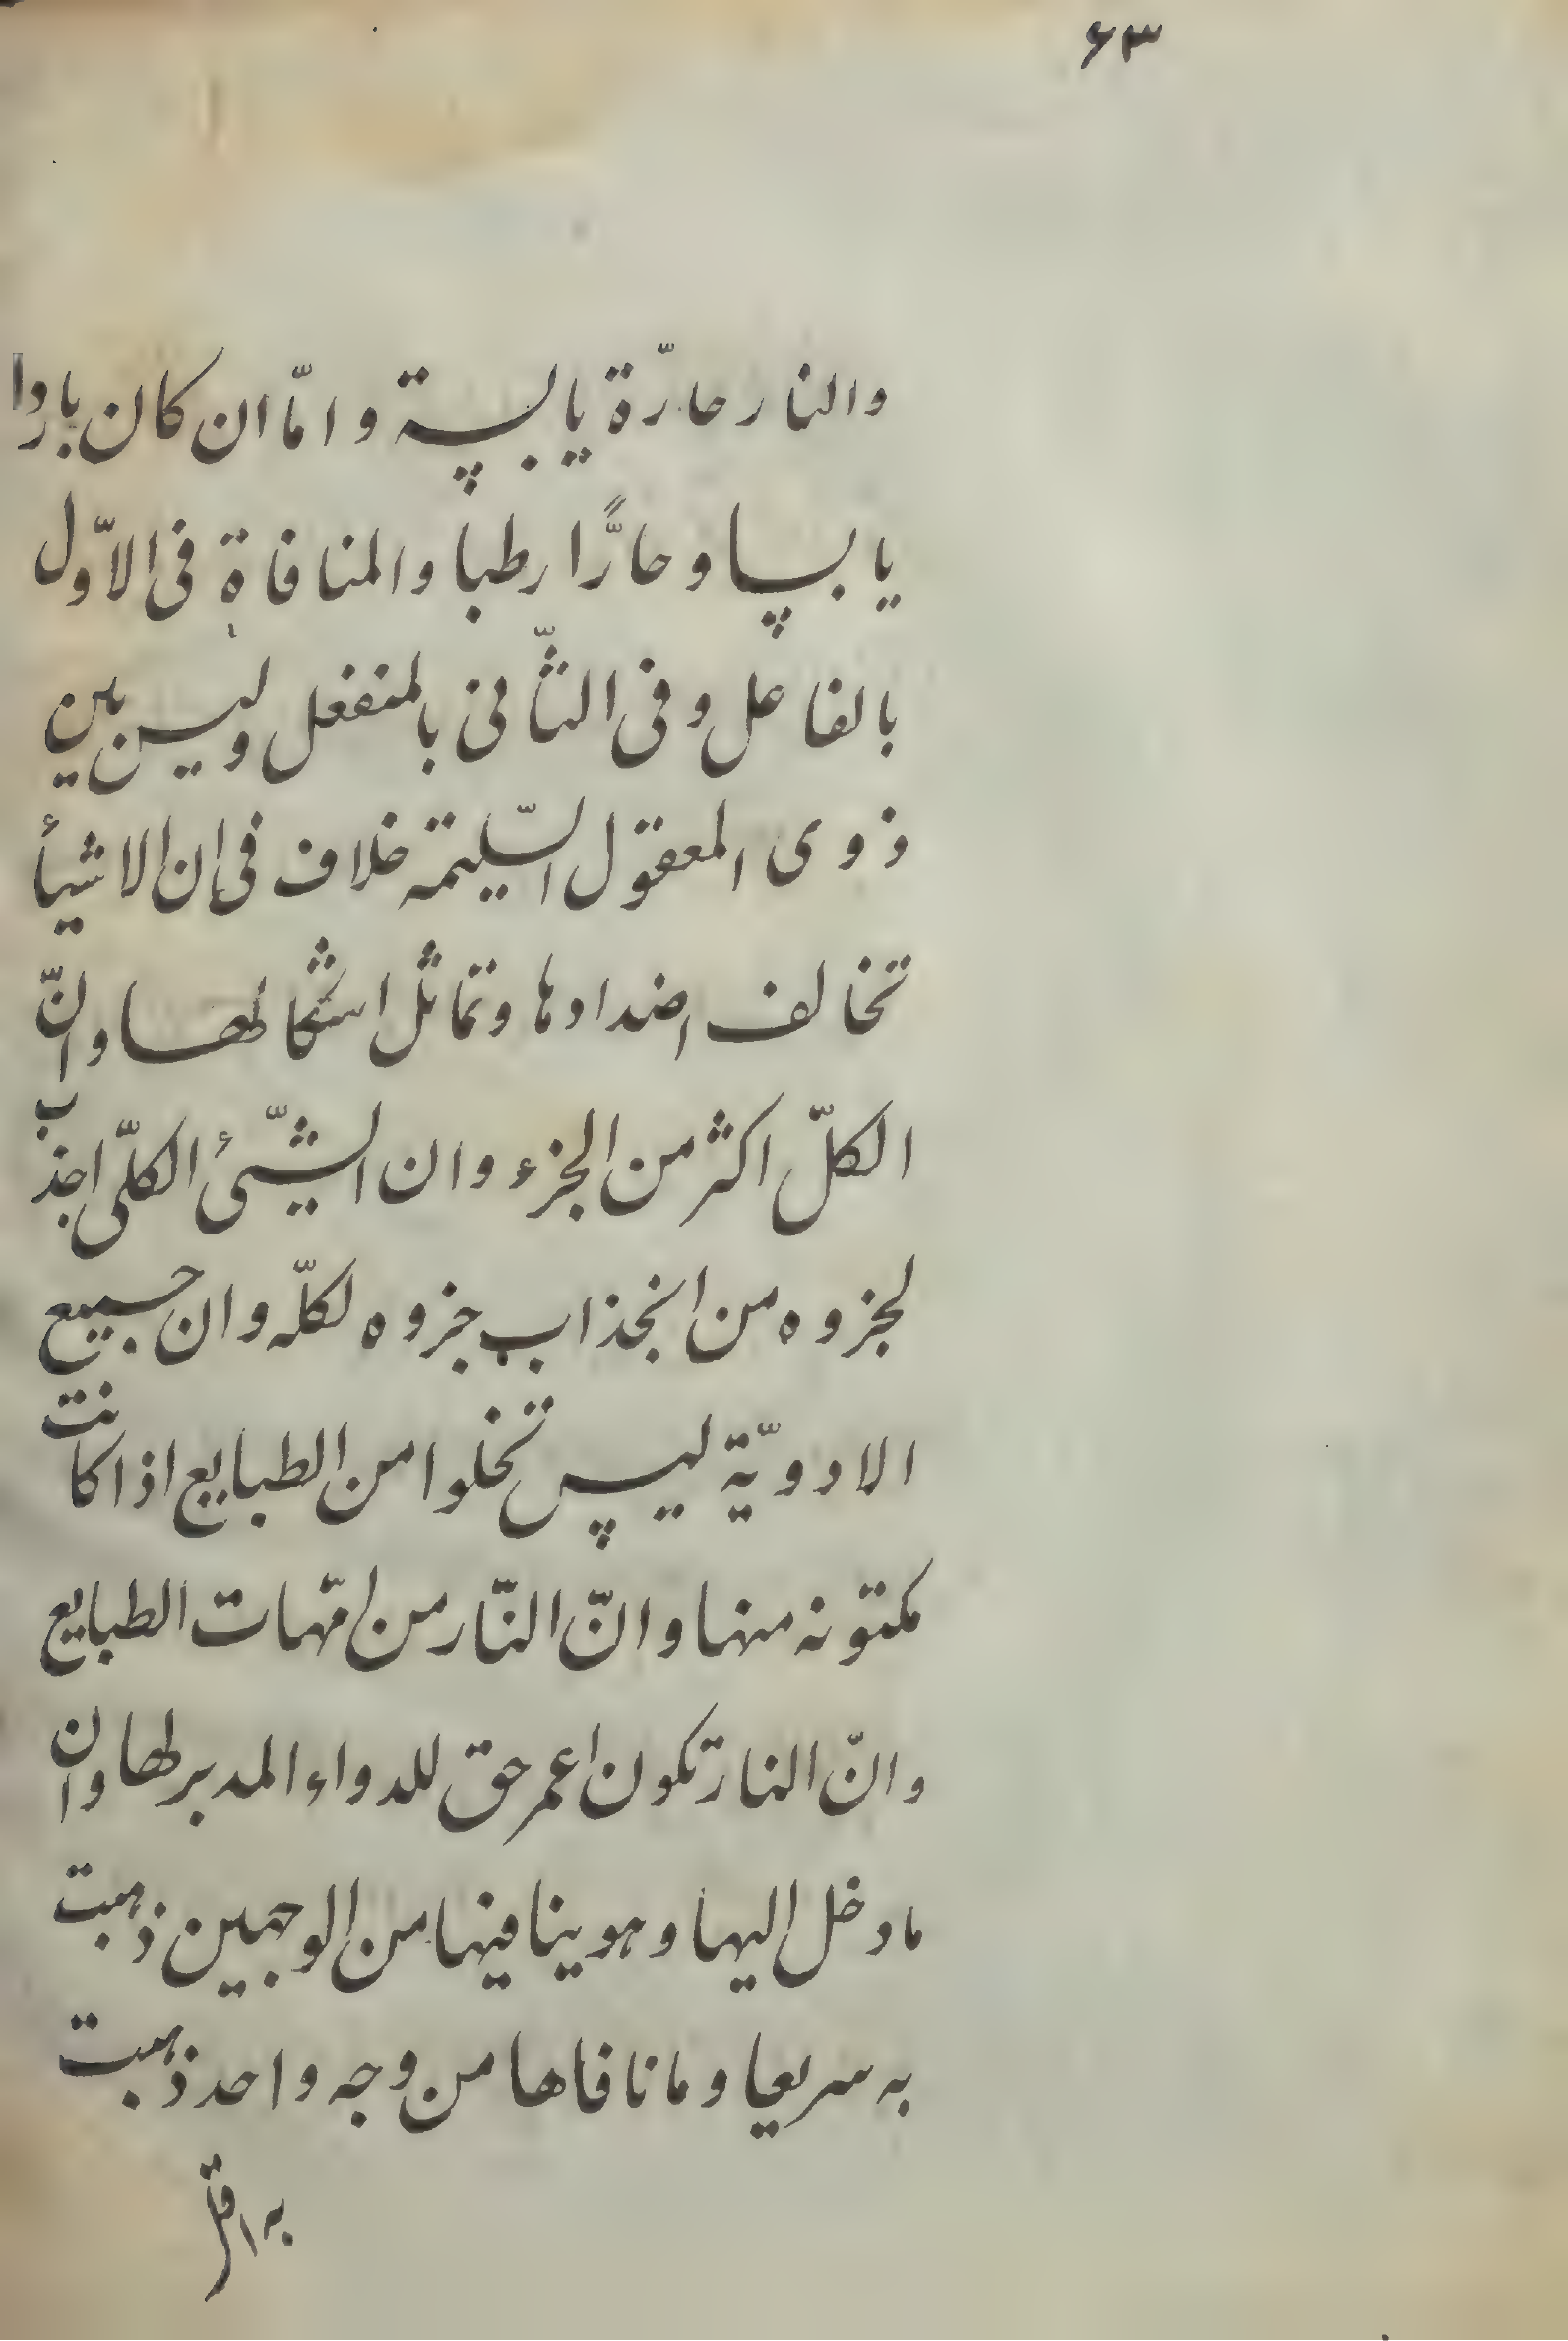 ۶۳
والنار حارّة يابسة و امّا ان كان باردا
يابسا و حارًّا رطبا والمنافاة فى الاوّل
بالفاعل و فى الثّانى بالمنفعل وليس بين
ذوى المعقول السّليتمة خلاف فى ان الاشيأ
تخالف اضدادها وتماثل اشكالها وانّ
الكلّ اكثر من الجزء وان الشّىٔ الكلّى اجذب
لجزوه من انجذاب جزوه لكلّه وان جميع
الادويّة ليس تخلوا من الطبايع اذا كانت
مكتونه منها وانّ النّار من امّهات الطبايع
وانّ النار تكون اعمر حق للدواء المدبر لها وان
ما دخل اليها و هو ينافيها من الوجهين ذهبت
به سريعا و ما نافاها من وجه واحد ذهبت
به اقل